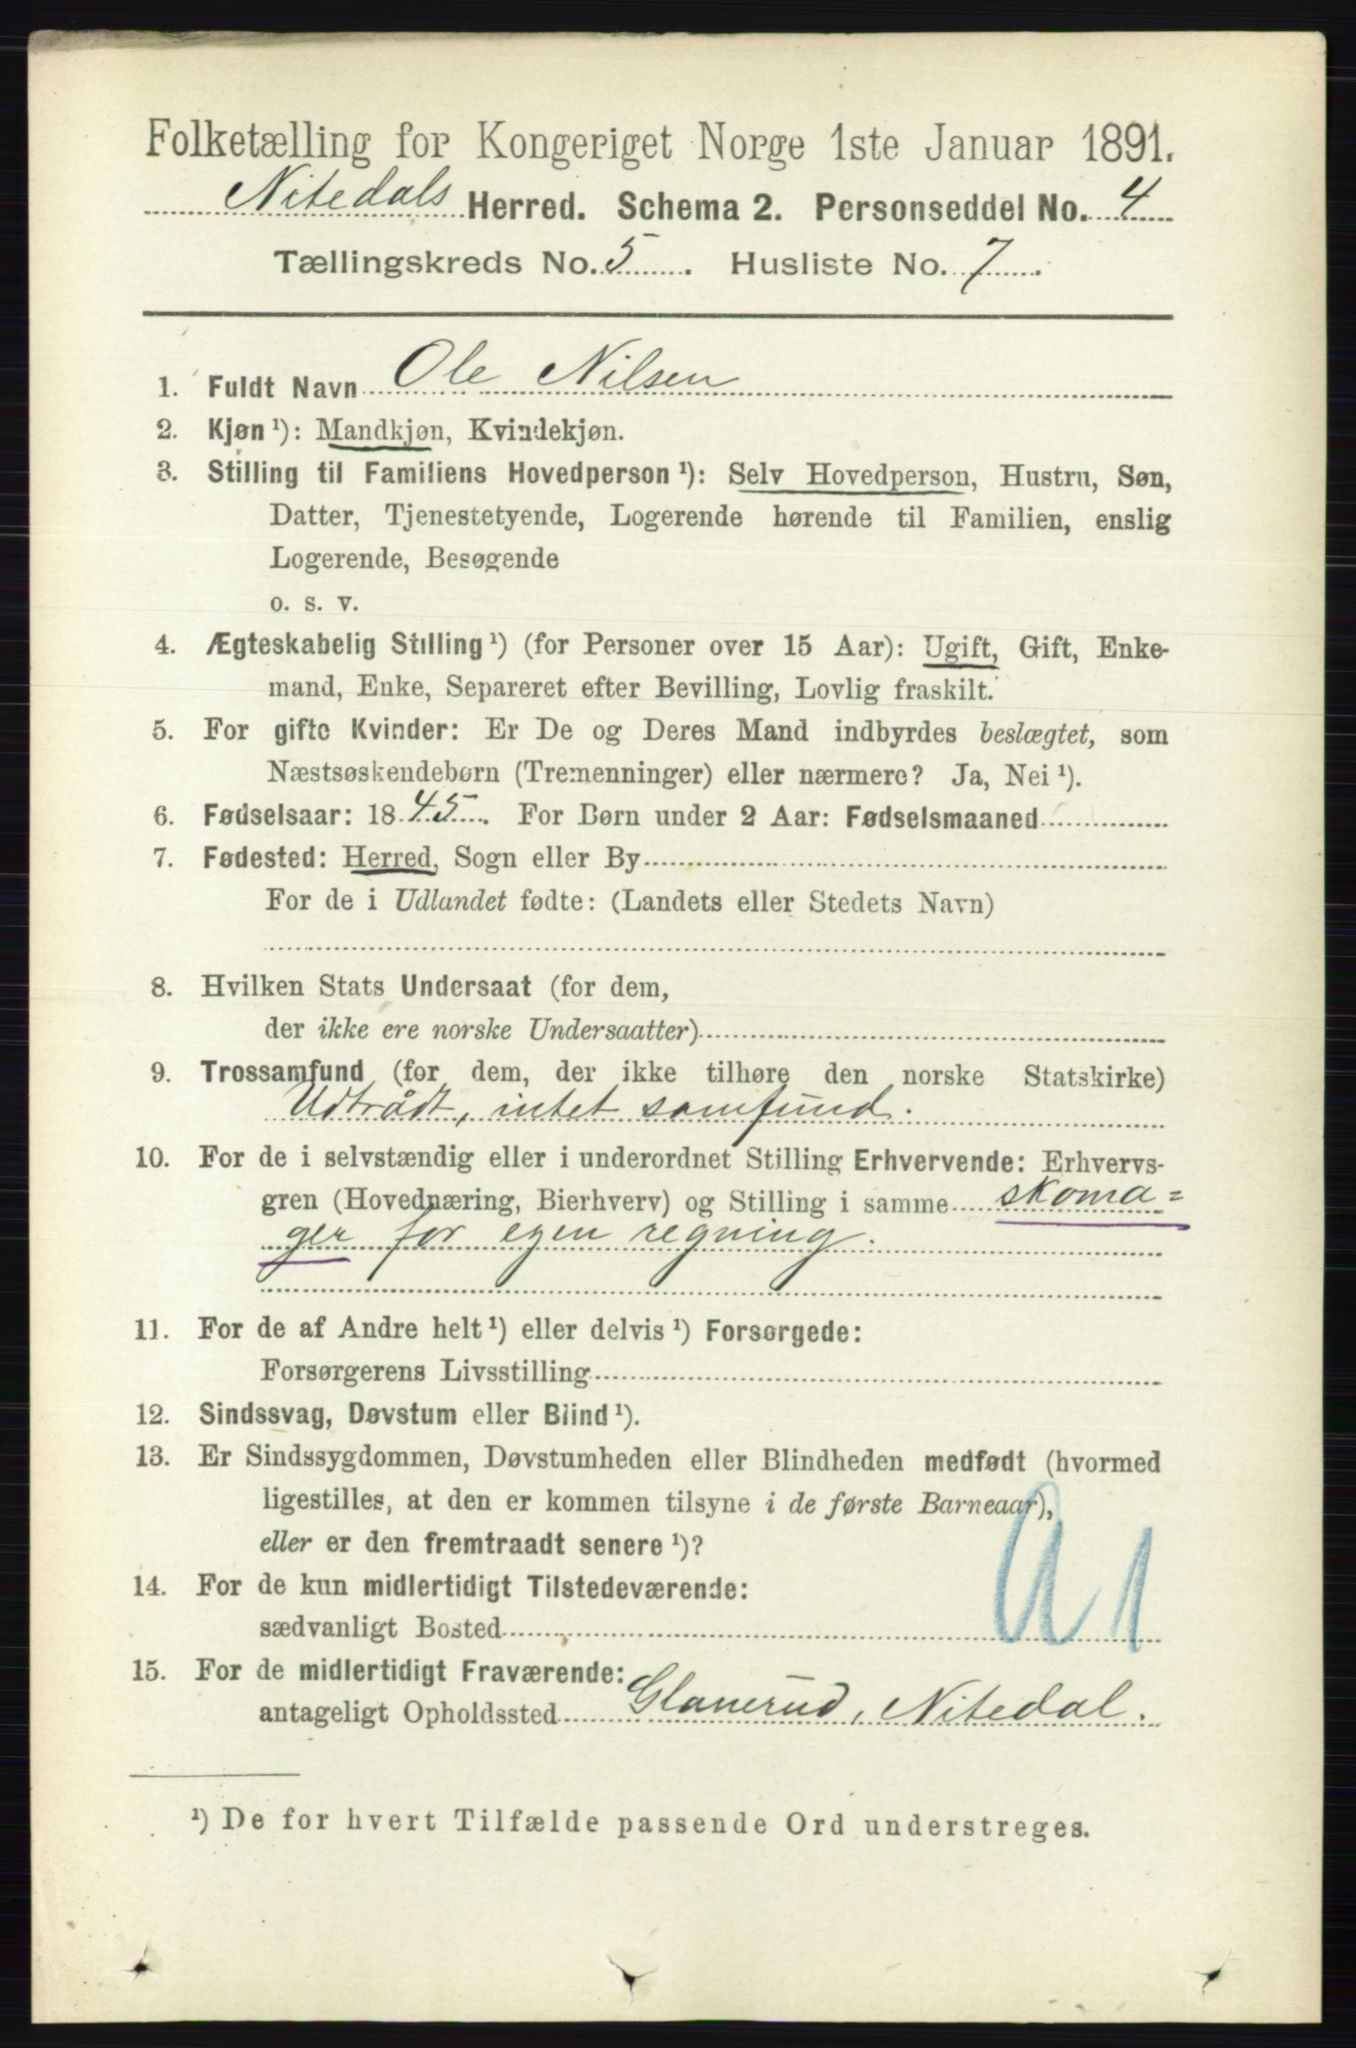 Folketælling for Kongeriget Norge 1ste Januar 1891.
Nitedals Herred. Schema 2. Personseddel No. 4
Tællingskreds No. 5. Husliste No. 7.
1. Fuldt Navn Ole Nilsen
2. Kjøn ¹): Mandkjøn, Kvindekjøn.
3. Stilling til Familiens Hovedperson ¹): Selv Hovedperson, Hustru, Søn,
Datter, Tjenestetyende, Logerende hørende til Familien, enslig
Logerende, Besøgende
o. s. v.
4. Ægteskabelig Stilling ¹) (for Personer over 15 Aar): Ugift, Gift, Enke-
mand, Enke, Separeret efter Bevilling, Lovlig fraskilt.
5. For gifte Kvinder: Er De og Deres Mand indbyrdes beslægtet, som
Næstsøskendebørn (Tremenninger) eller nærmere? Ja, Nei ¹).
6. Fødselsaar: 1845. For Børn under 2 Aar: Fødselsmaaned
7. Fødested: Herred, Sogn eller By
For de i Udlandet fødte: (Landets eller Stedets Navn)
8. Hvilken Stats Undersaat (for dem,
der ikke ere norske Undersaatter)
9. Trossamfund (for dem, der ikke tilhøre den norske Statskirke)
Udtrådt, intet samfund.
10. For de i selvstændig eller i underordnet Stilling Erhvervende: Erhvervs-
gren (Hovednæring, Bierhverv) og Stilling i samme skoma=
ger for egen regning.
11. For de af Andre helt ¹) eller delvis ¹) Forsørgede:
Forsørgerens Livsstilling
12. Sindssvag, Døvstum eller Blind ¹).
13. Er Sindssygdommen, Døvstumheden eller Blindheden medfødt (hvormed
ligestilles, at den er kommen tilsyne i de første Barneaar),
eller er den fremtraadt senere ¹)?
14. For de kun midlertidigt Tilstedeværende:
sædvanligt Bosted
15. For de midlertidigt Fraværende:
antageligt Opholdssted Glanerud, Nitedal.
¹) De for hvert Tilfælde passende Ord understreges.